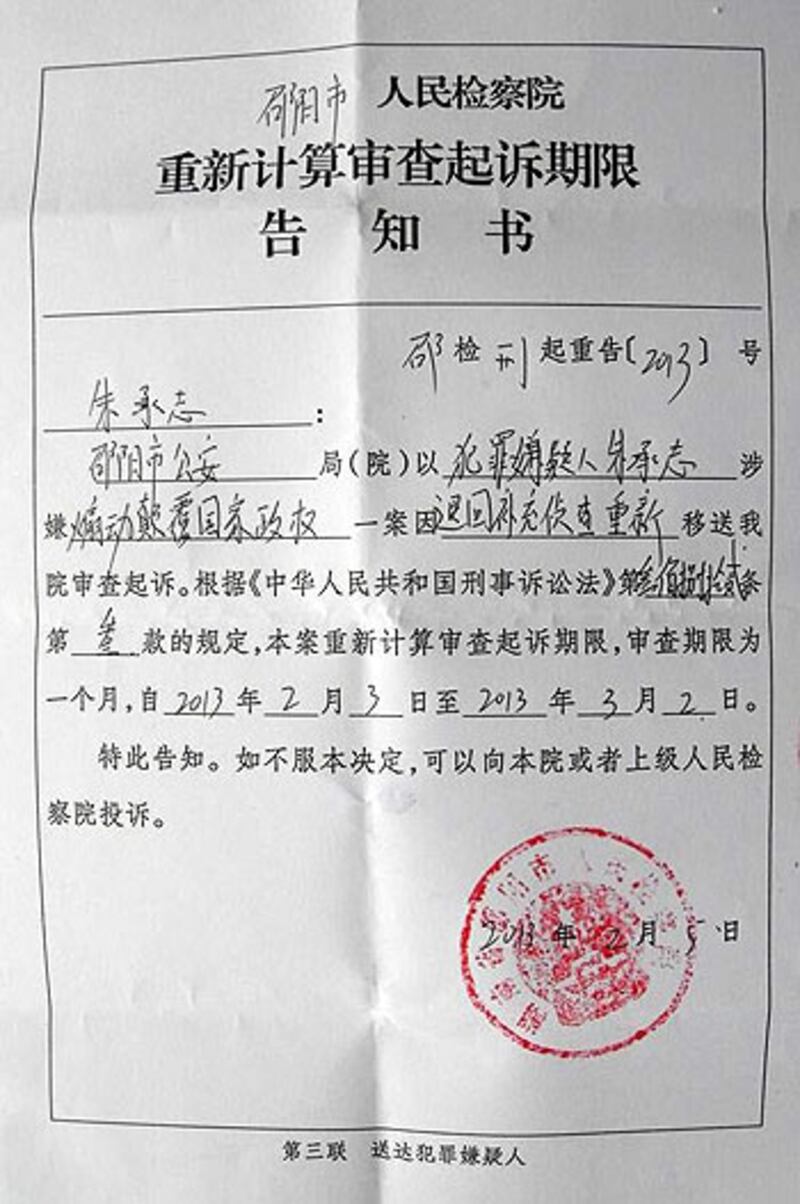 邵阳市 人民检察院
重新计算审查起诉期限
告知书
邵检刑起重告〔2013〕 号
朱承志:
邵阳市公安局(院)以犯罪嫌疑人朱承志涉
嫌煽动颠覆国家政权一案因退回补充侦查重新移送我
院审查起诉。根据《中华人民共和国刑事诉讼法》第条
第壹款的规定,本案重新计算审查起诉期限,审查期限为
一个月,自2013年2月3日至2013年3月2日。
特此告知。如不服本决定,可以向本院或者上级人民检
察院投诉。
湖南省邵阳市人民检察院
2013年2月5日
第三联 送达犯罪嫌疑人